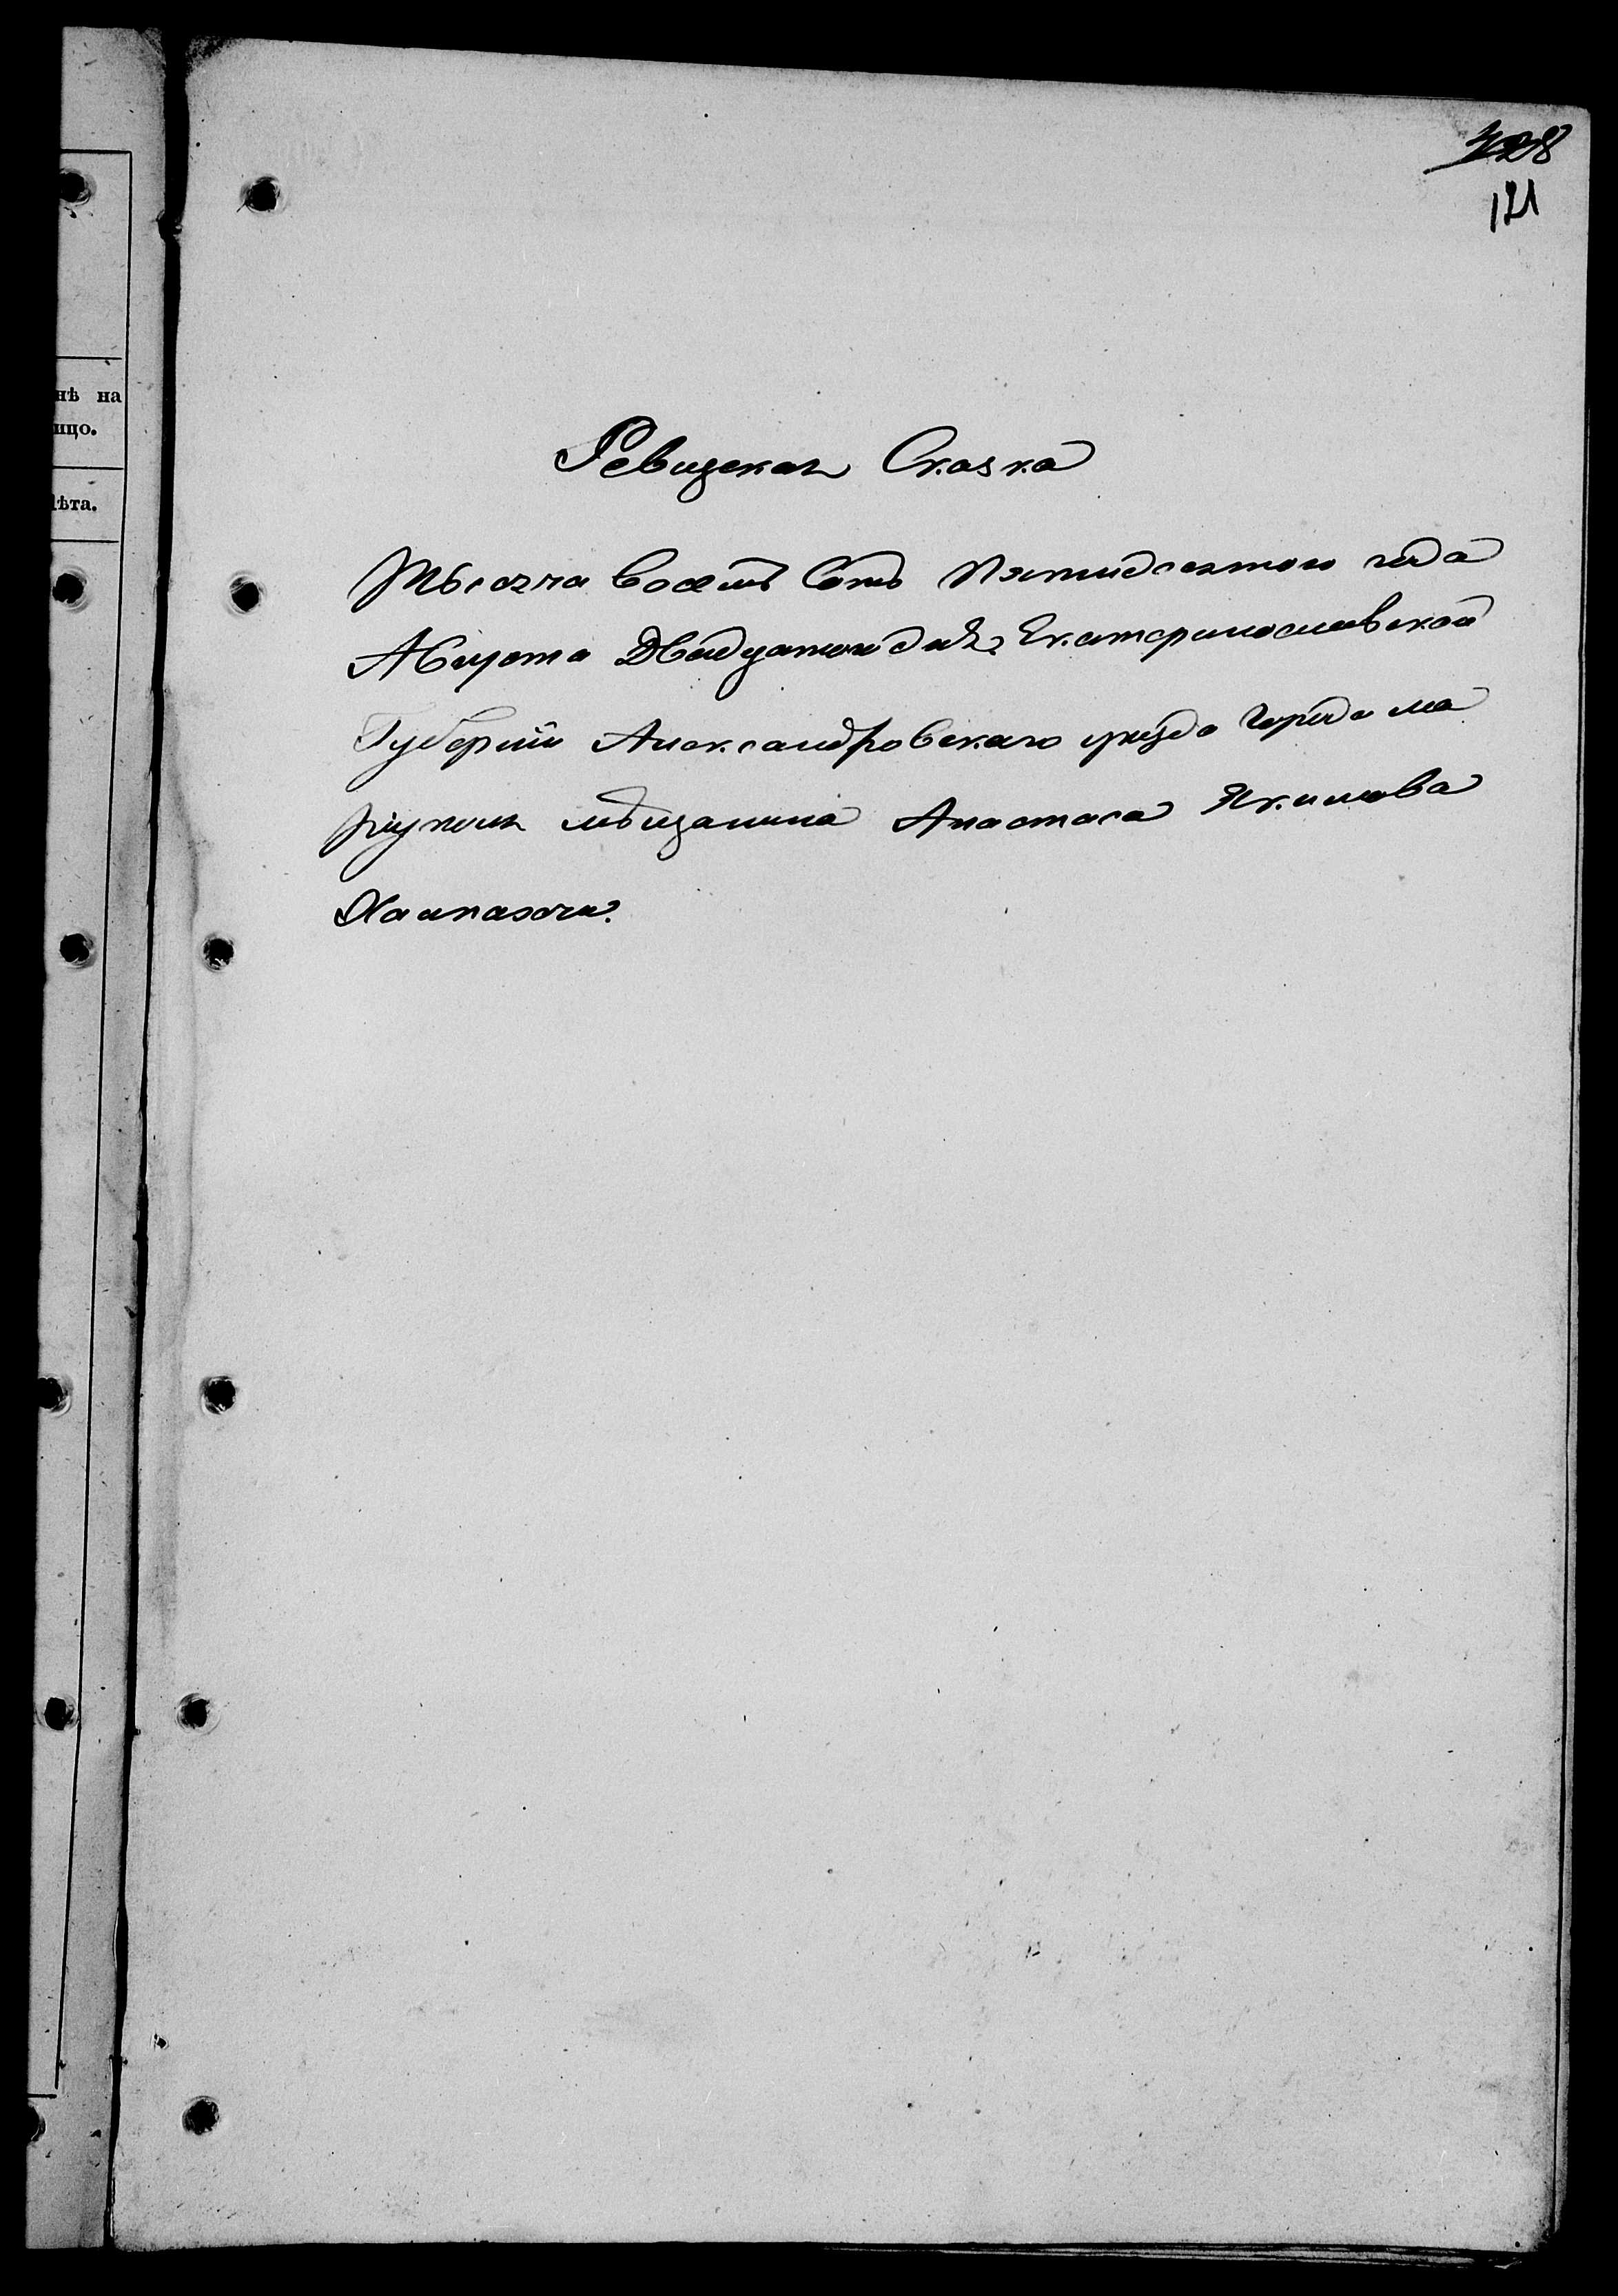 328
121
нѣ на
ицо.
лѣта.
Ревизская Сказка
Тысяча восемь Сотъ Пятидесятого года
Августа Двадцатого дня, Екатеринославской
Губерніи Александровскаго уезда Города Ма
риуполя мѣщанина Анастаса Якимова